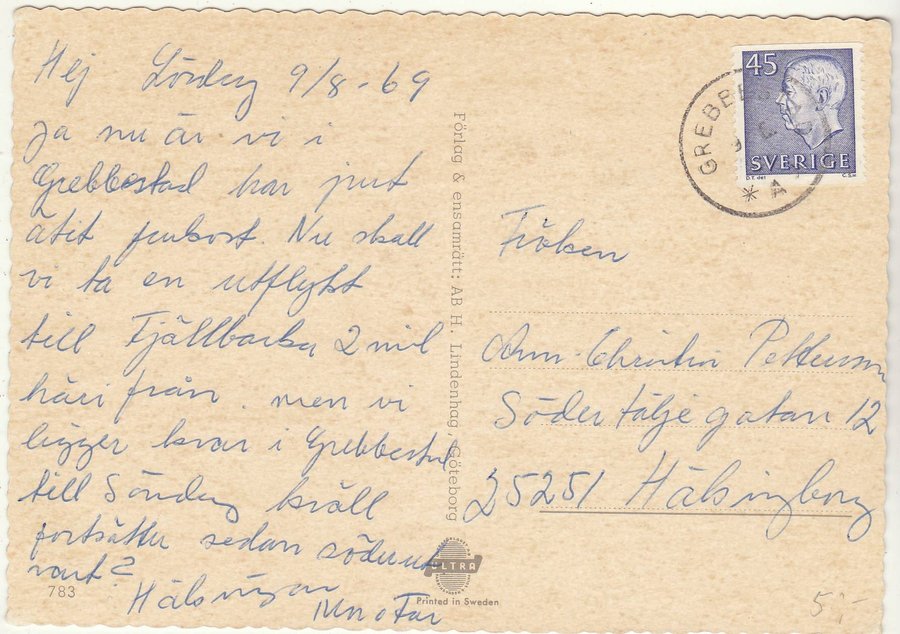 Hej Lördag 9/8-69
Ja nu är vi i
Grebbestad har just
ätit frukost. Nu skall
vi ta en utflykt
till Fjällbacka 2 mil
härifrån. men vi
ligger kvar i Grebbestad
till Söndag kväll
fortsätter sedan söderut
vart?
Hälsningar
o Far
783
Förlag & ensamrätt: AB H. Lindenhag, Göteborg
ULTRA
Printed in Sweden
45
SVERIGE
D.T. del
GREBBES
9
* A
Fröken
Ann-Christin Pettersson
Södertäljegatan 12
25251 Hälsingborg